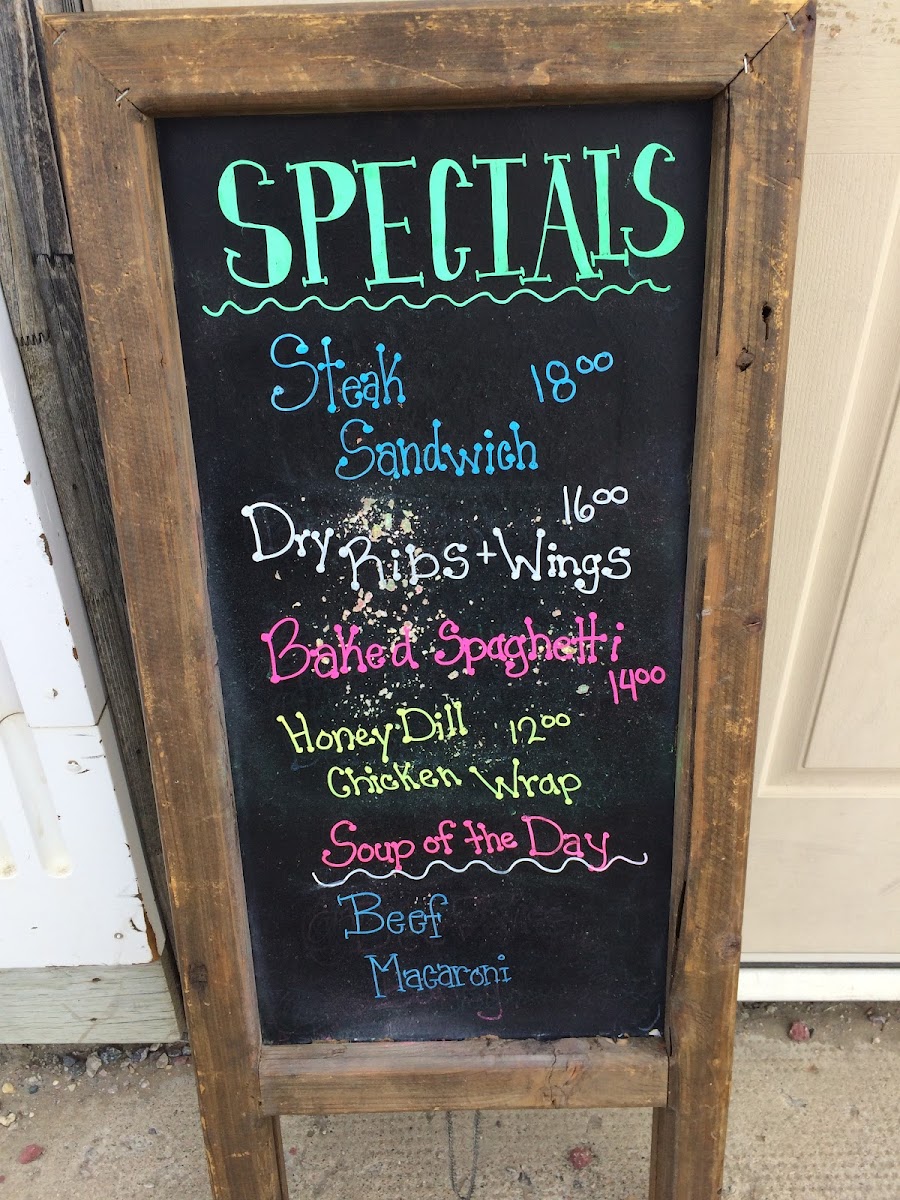 SPECIALS
Steak 18.00
Sandwich
16.00
Dry Ribs + Wings
Baked Spaghetti
14.00
Honey Dill 12.00
Chicken Wrap
Soup of the Day
Beef
Macaroni